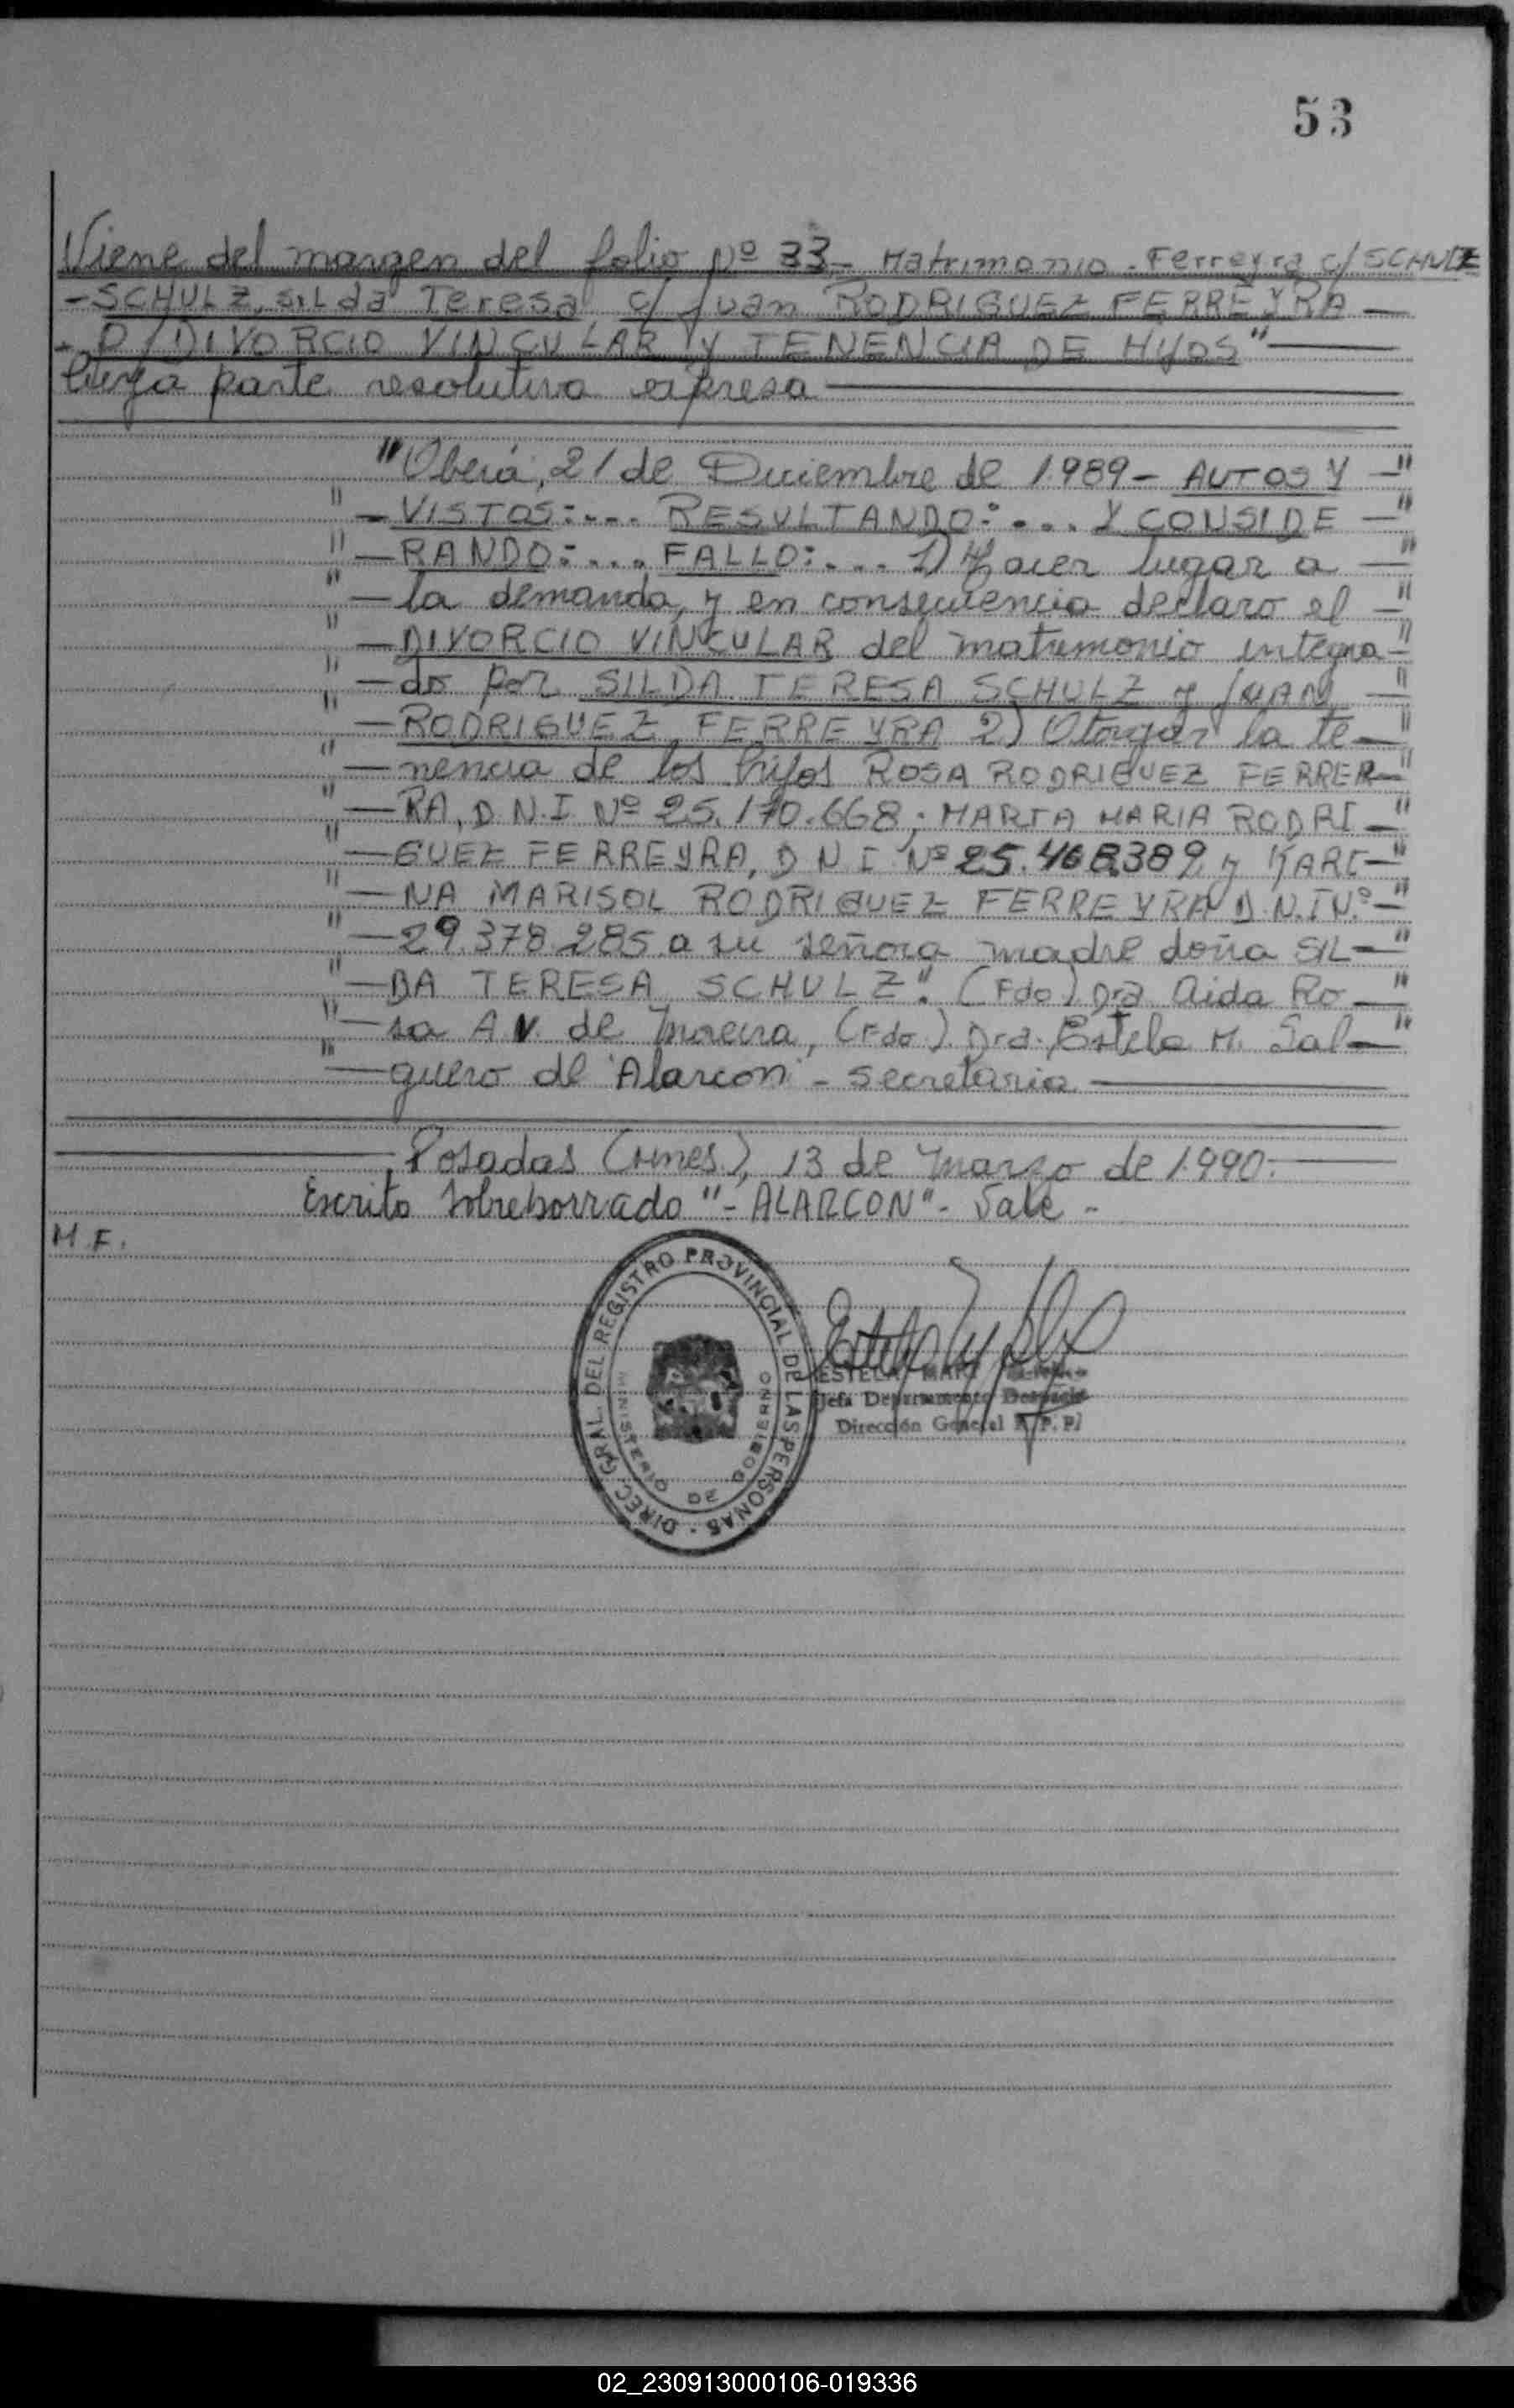 53
Viene del margen del folio Nº 33- Matrimonio - Ferreyra c/ SCHULZ
- SCHULZ, SILda Teresa c/ Juan RODRIGUEZ FERREYRA —
- P/DIVORCIO VINCULAR Y TENENCIA DE HIJOS" —
Cuya parte resolutiva expresa —
"Oberá, 21 de Diciembre de 1.989 - AUTOS Y —"
" — VISTOS: ... RESULTANDO: ... Y CONSIDE —"
" — RANDO: ... FALLO: ... 1) Hacer lugar a —"
" — la demanda, y en consecuencia declaro el —"
" — DIVORCIO VINCULAR del matrimonio integra -"
" — do por SILDA TERESA SCHULZ y JUAN —"
" — RODRIGUEZ FERREYRA 2) Otorgar la te —"
" — nencia de los hijos ROSA RODRIGUEZ FERRER —"
" — RA, D.N.I Nº 25.170.668; MARTA MARIA RODRI —"
" — GUEZ FERREYRA, D N I Nº 25.468389 y KARI —"
" — NA MARISOL RODRIGUEZ FERREYRA D.N.I Nº —"
" — 29.378.285 a su señora madre doña SIL —"
" — DA TERESA SCHULZ". (Fdo) Dra Aida Ro —"
" — sa A.V. de Moreira, (Fdo.) Dra. Estela M. Sal —"
" — guero de Alarcon - secretaria —
Posadas (Mnes.), 13 de Marzo de 1.990. —
Escrito sobreborrado "- ALARCON" - Vale -
M.F.
DIREC. GRAL. DEL REGISTRO PROVINCIAL DE LAS PERSONAS
MINISTERIO DE GOBIERNO
ESTELA
Jefa Departamento Despacho
Dirección General R. P. P.
02_230913000106-019336